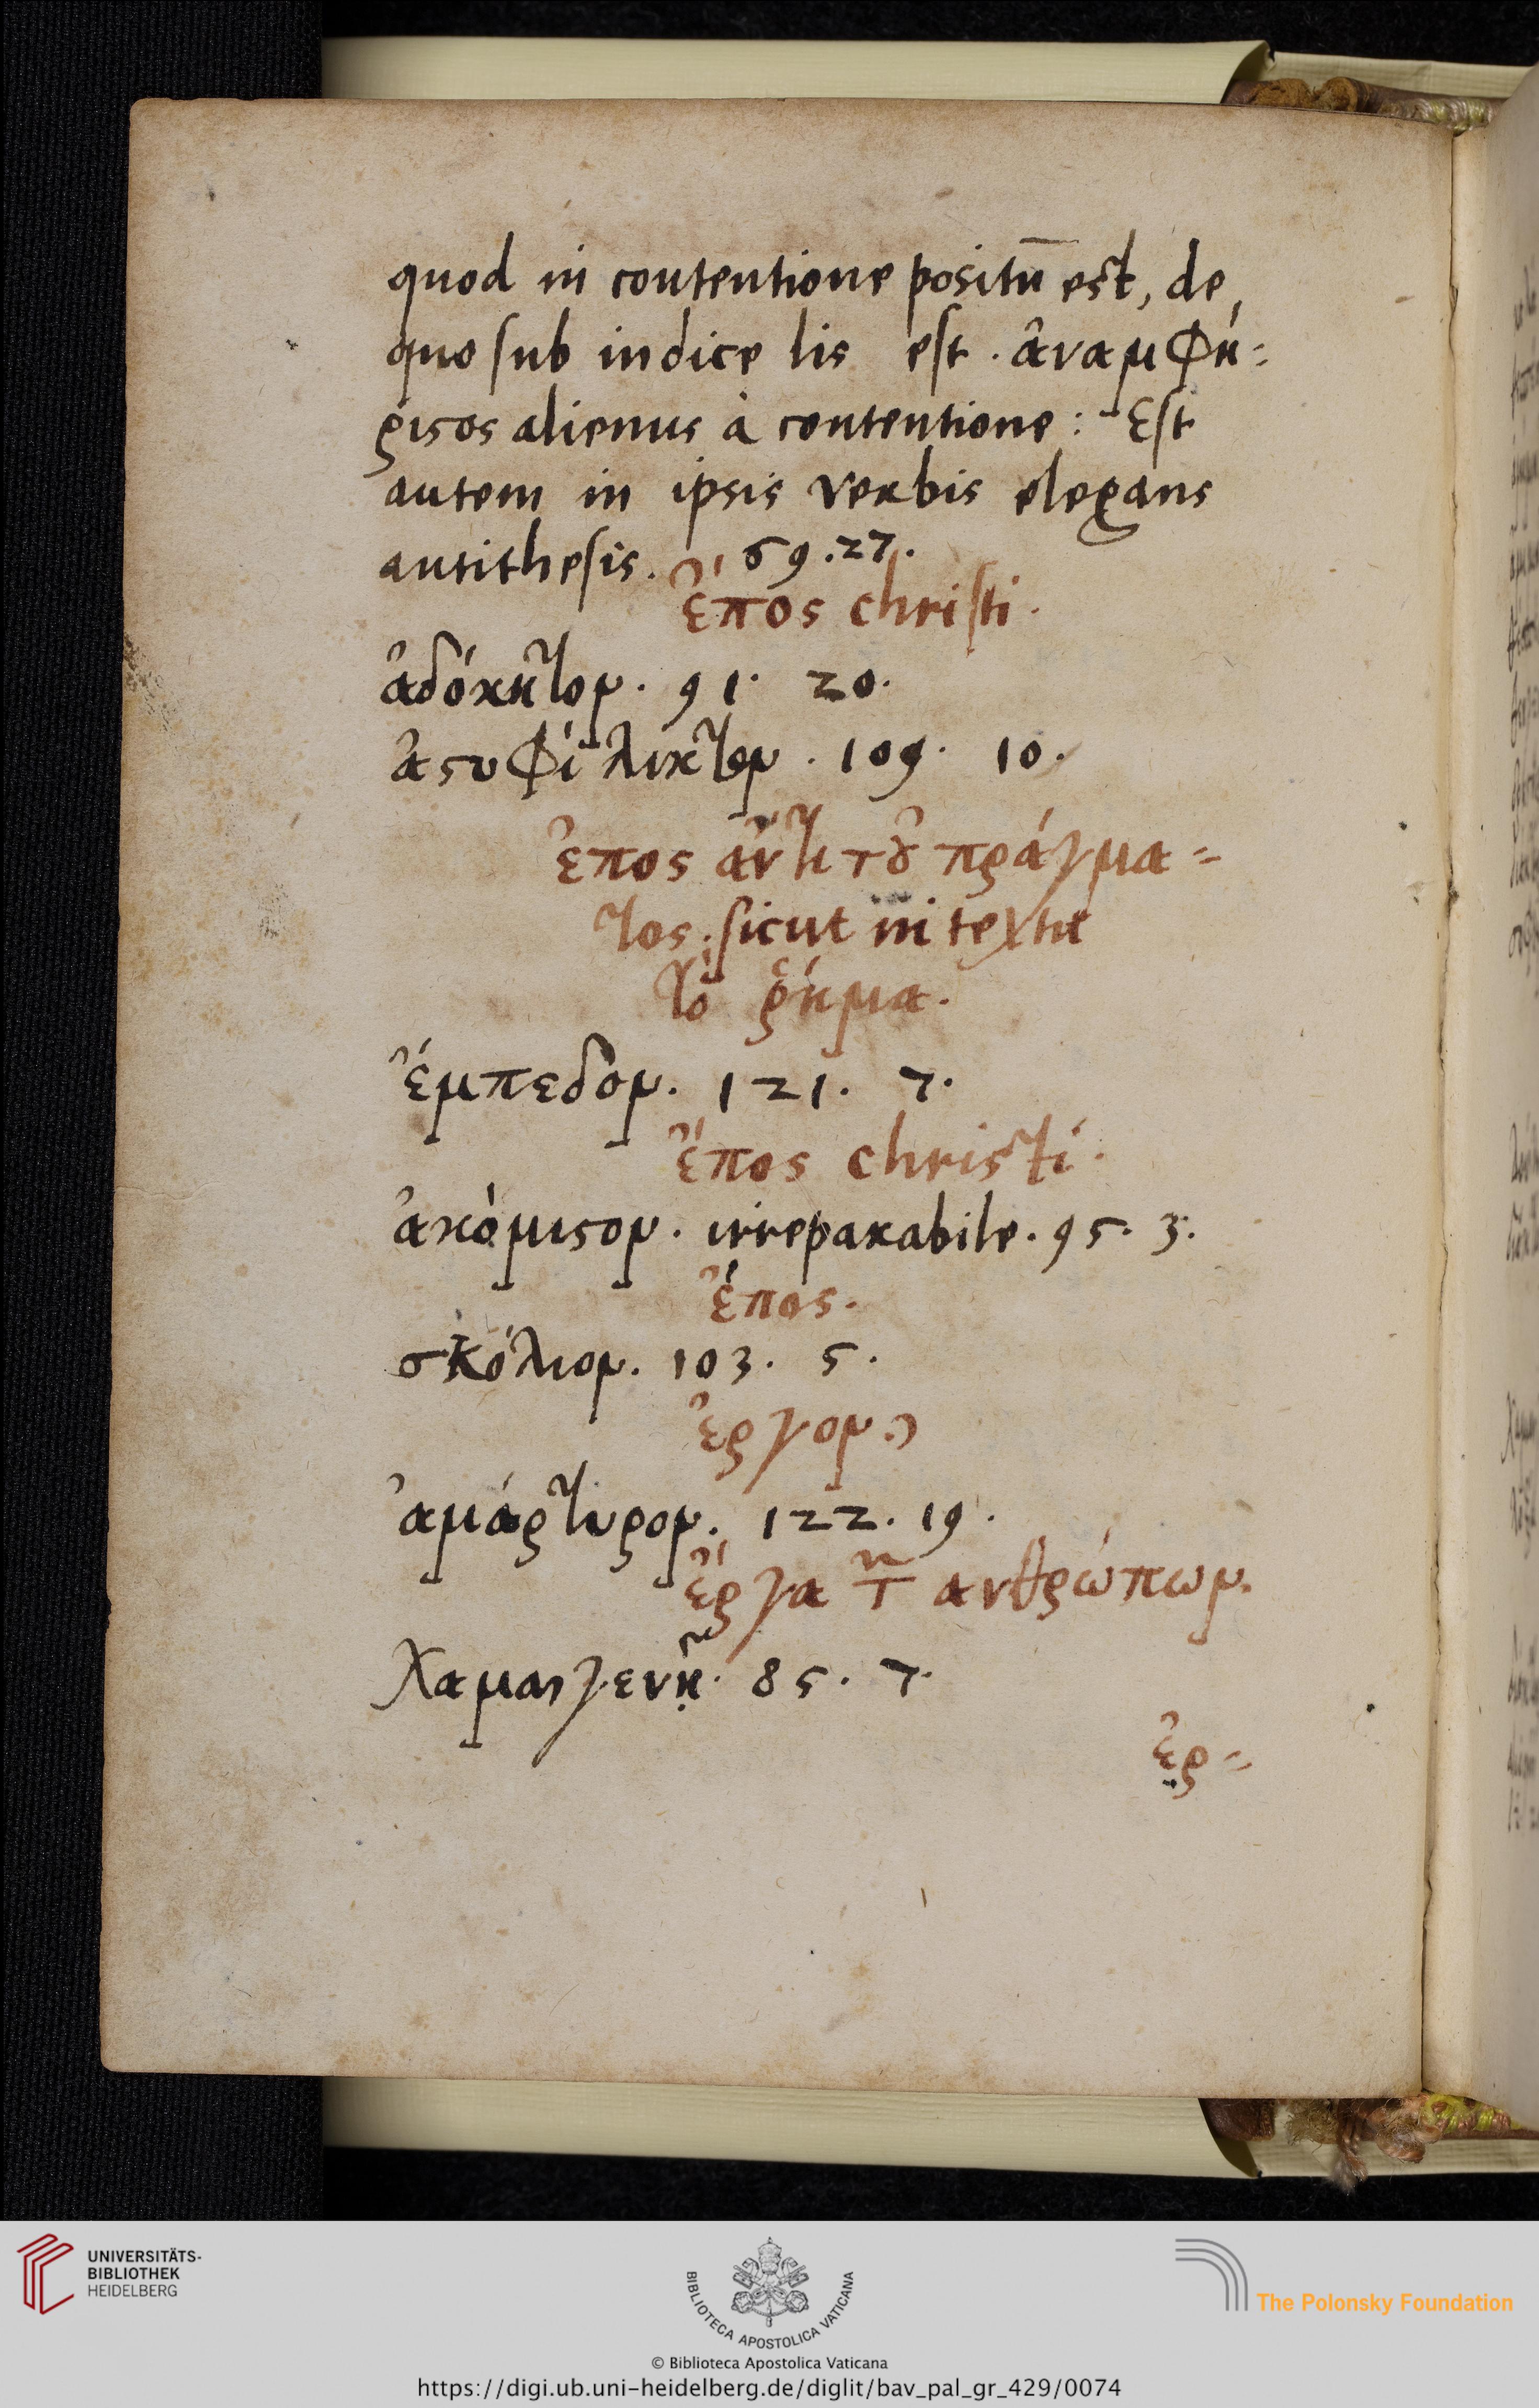 quod in contentione positū est, de
quo sub iudice lis est. ἀναμφή=
ριςος alienus à contentione: Est
autem in ipsis verbis elegans
antithesis. 69.27.
ἔπος christi.
ἀδόκητον. 91. 20.
ἀςυφέλικτον. 109. 10.
ἐπος ἀντὶ τȣ̃ πράγμα=
τος. sicut in textu
τὸ ῥήμα.
ἔμπεδον. 121. 7.
ἔπος christi.
ἀκόμιςον. irreparabile. 95. 3.
ἔπος.
σκόλιον. 103. 5.
ἐργον.
ἀμάρτυρον. 122. 19.
ἔργα τ ανθρώπων.
χαμαιγενῆ. 85. 7.
ἐρ=
UNIVERSITÄTS-
BIBLIOTHEK
HEIDELBERG
BIBLIOTECA APOSTOLICA VATICANA
© Biblioteca Apostolica Vaticana
The Polonsky Foundation
https://digi.ub.uni-heidelberg.de/diglit/bav_pal_gr_429/0074